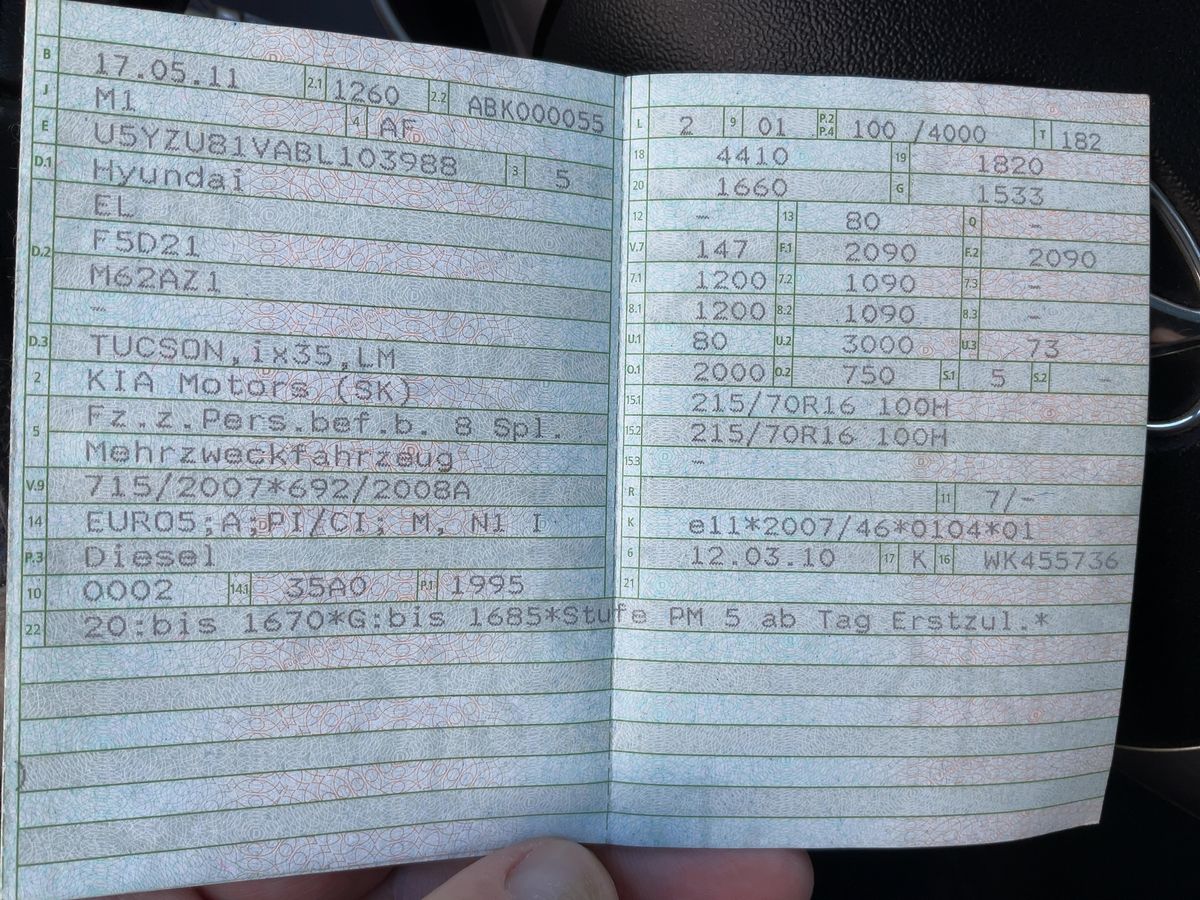 B 17.05.11 2.1 1260 2.2 ABK000055
J M1 4 AF
E U5YZU81VABL103988 3 5
D.1 Hyundai
D.2 EL
F5D21
M62AZ1
–
D.3 TUCSON,ix35,LM
2 KIA Motors (SK)
5 Fz.z.Pers.bef.b. 8 Spl.
Mehrzweckfahrzeug
V.9 715/2007*692/2008A
14 EURO5;A;PI/CI; M, N1 I
P.3 Diesel
10 0002 14.1 35A0 P.1 1995
22 20:bis 1670*G:bis 1685*Stufe PM 5 ab Tag Erstzul.*
L 2 9 01 P.2 P.4 100 /4000 T 182
18 4410 19 1820
20 1660 G 1533
12 – 13 80 Q –
V.7 147 F.1 2090 F.2 2090
7.1 1200 7.2 1090 7.3 –
8.1 1200 8.2 1090 8.3 –
U.1 80 U.2 3000 U.3 73
O.1 2000 O.2 750 S.1 5 S.2 –
15.1 215/70R16 100H
15.2 215/70R16 100H
15.3 –
R 11 7/–
K e11*2007/46*0104*01
6 12.03.10 17 K 16 WK455736
21